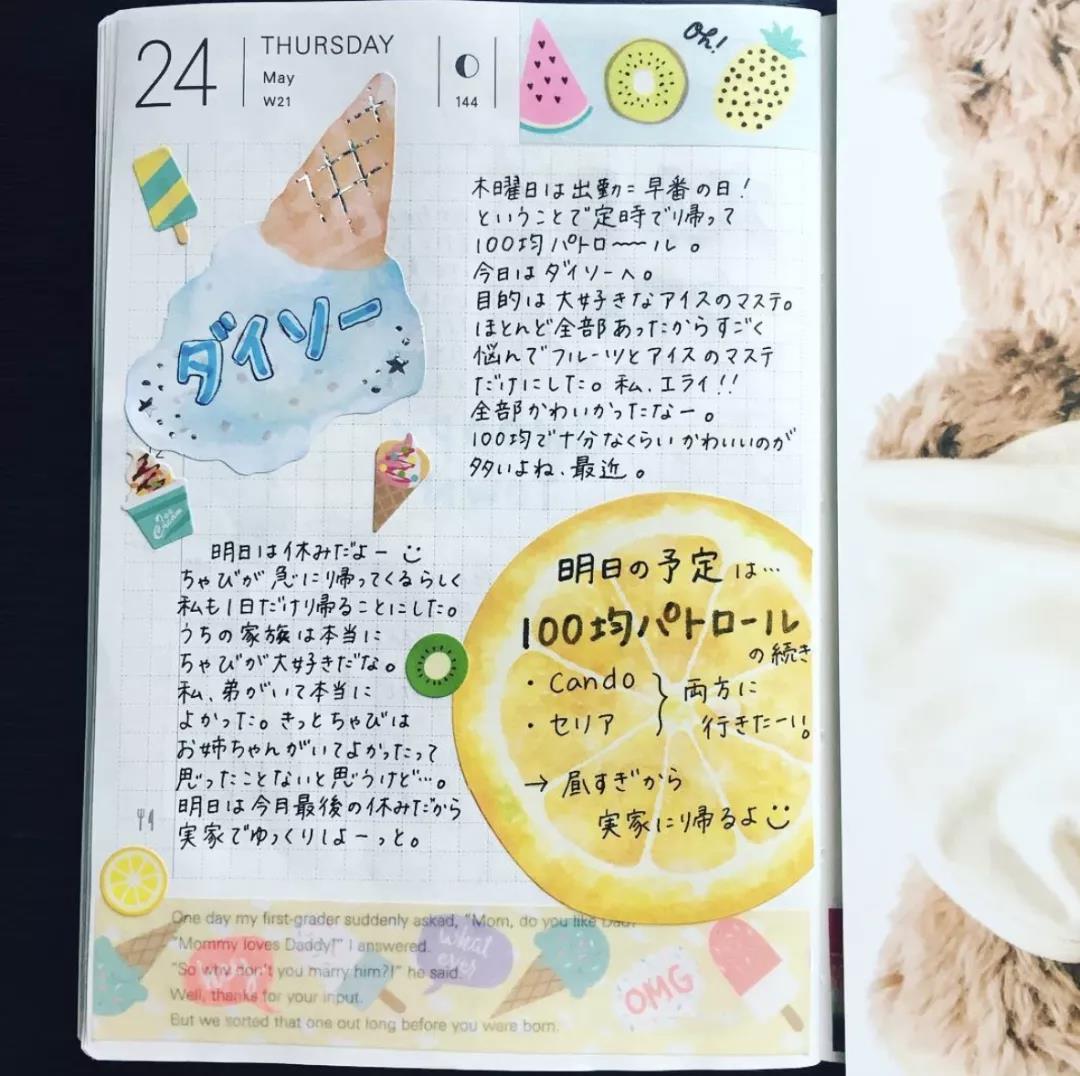 24
THURSDAY
May
W21
144
Oh!
ダイソー
木曜日は出勤=早番の日!
ということで定時で帰って
100均パトロ〜〜ル。
今日はダイソーへ。
目的は大好きなアイスのマステ。
ほとんど全部あったからすごく
悩んでフルーツとアイスのマステ
だけにした。私、エライ!!
全部かわいかったなー。
100均で十分なくらいかわいいのが
多いよね、最近。
Ice
Cream
明日は休みだよー
ちゃびが急に帰ってくるらしく
私も1日だけ帰ることにした。
うちの家族は本当に
ちゃびが大好きだな。
私、弟がいて本当に
よかった。きっとちゃびは
お姉ちゃんがいてよかったって
思ったことないと思うけど…。
明日は今月最後の休みだから
実家でゆっくりしよーっと。
明日の予定は…
100均パトロール
の続き
・Cando
・セリア
両方に
行きたーい。
→ 昼すぎから
実家に帰るよ
One day my first-grader suddenly asked, "Mom, do you like Dad?"
"Mommy loves Daddy!" I answered.
"So why don't you marry him?!" he said.
Well, thanks for your input.
But we sorted that one out long before you were born.
what
ever
OMG